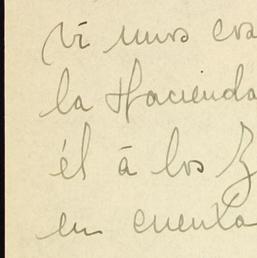 vi unos
la Hacienda
él á los
en cuenta